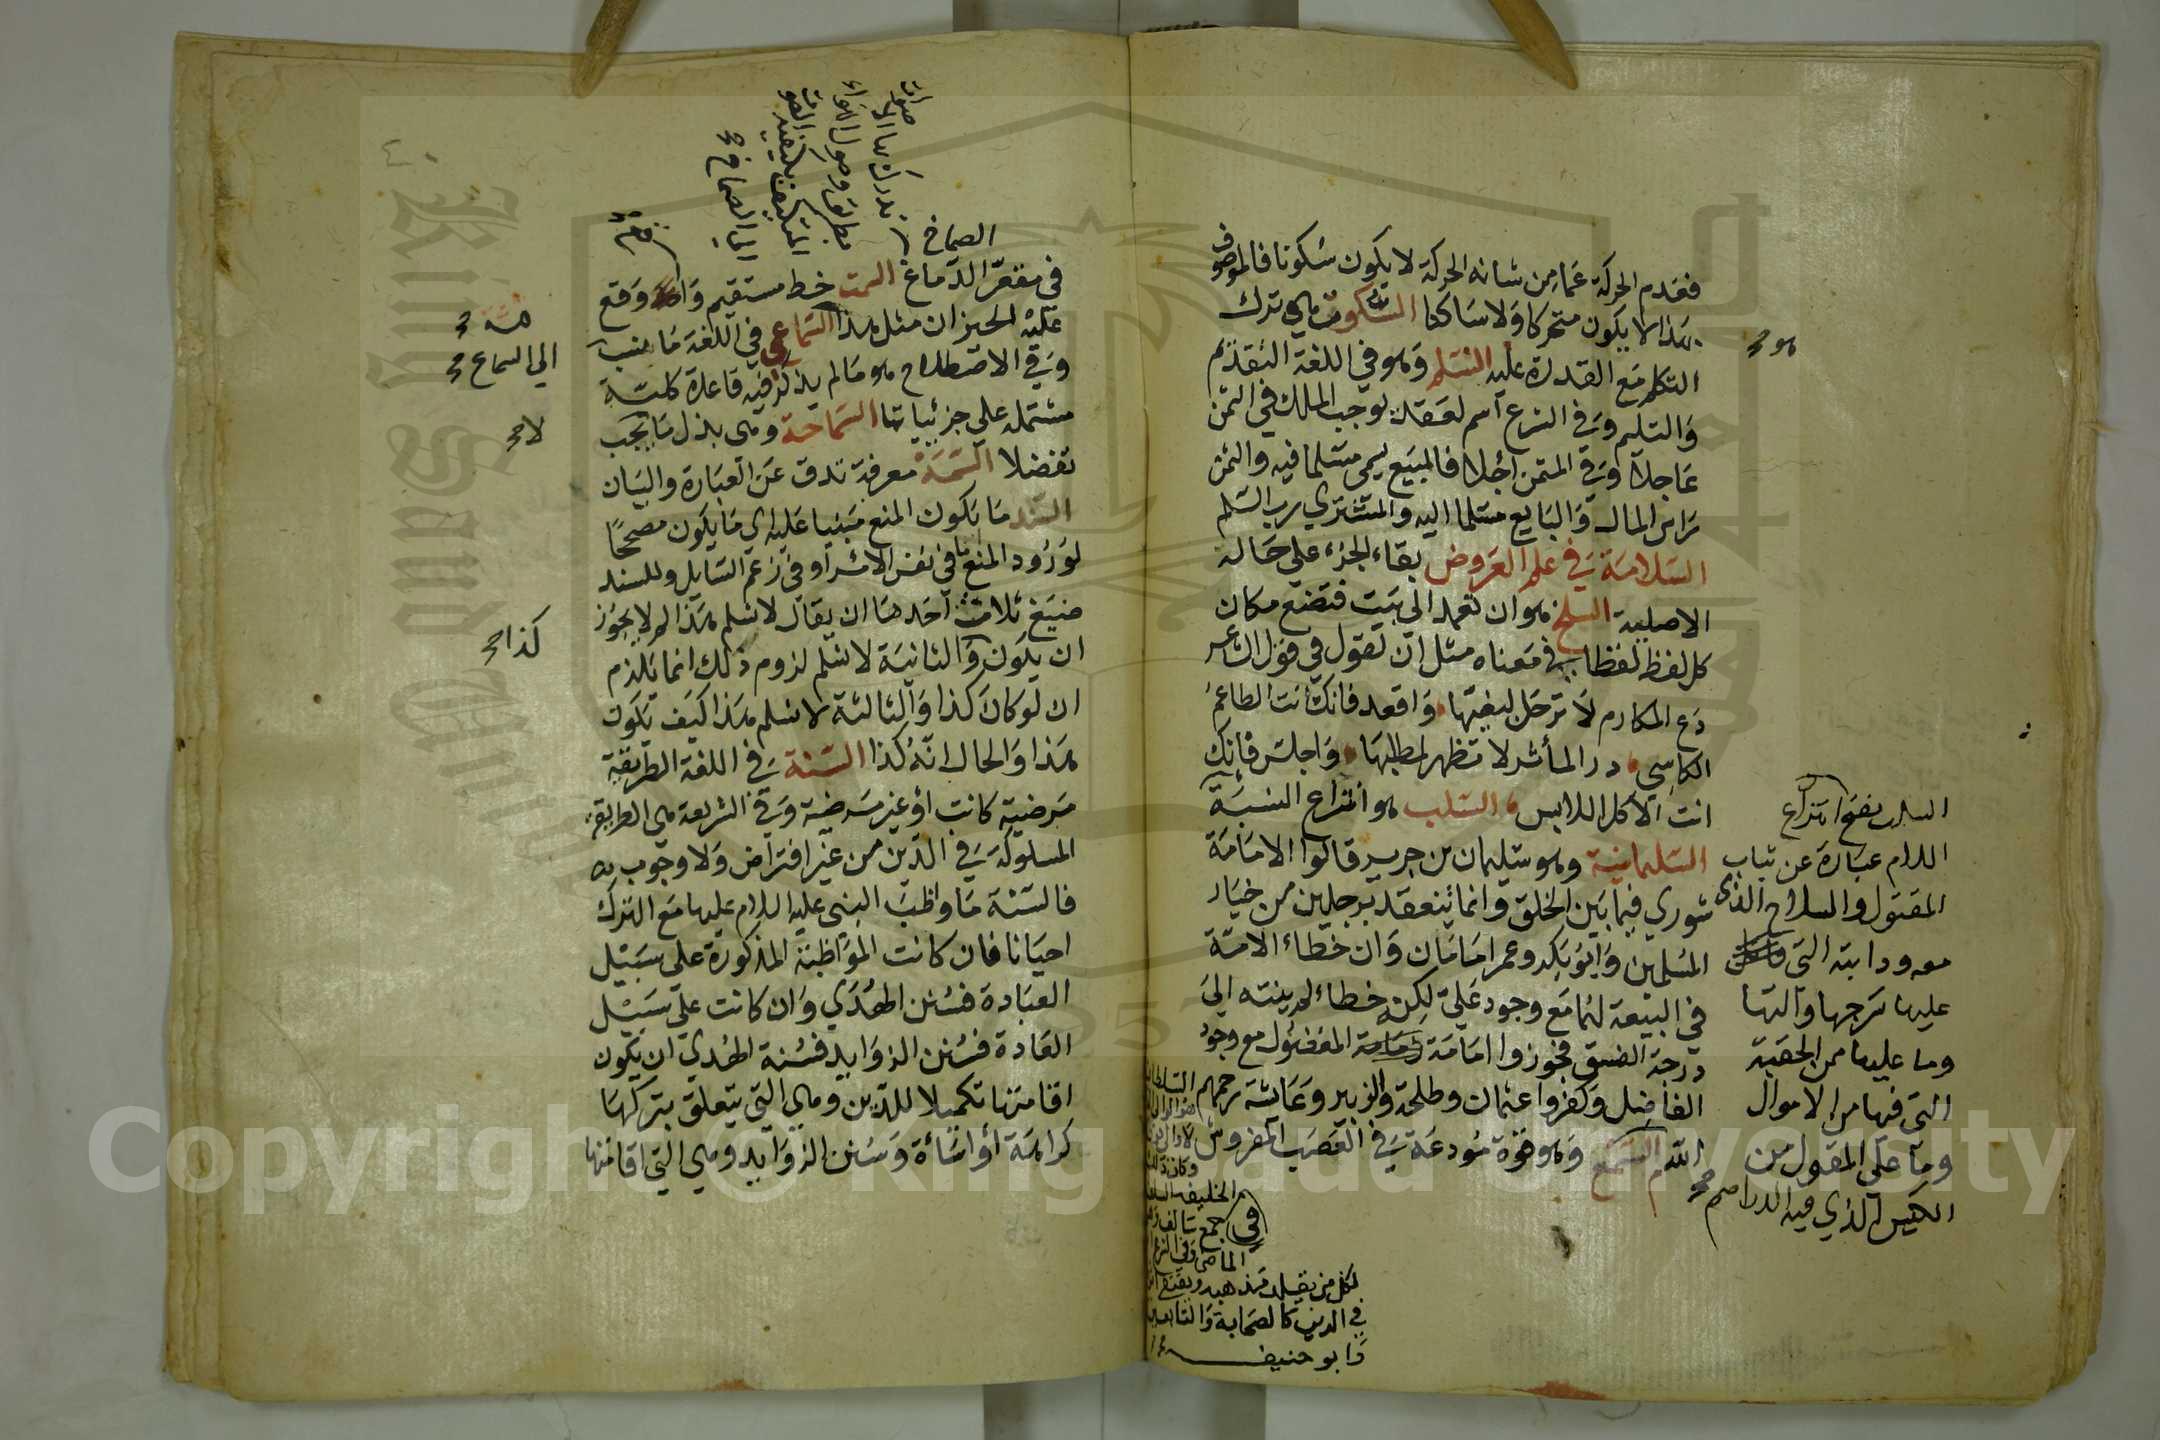 فعدم الحركة عما من شانه الحركة لا يكون سكونا فالموصوف
بهذا لا يكون متحركا ولا ساكنا السكوت هي ترك
التكلم مع القدرة عليه السلم وهو في اللغة التقديم
والتسليم وفي الشرع اسم لعقد يوجب الملك في الثمن
عاجلا وفي المثمن اجلا فالمبيع يسمى مسلما فيه والثمن
راس المال والبايع مسلما اليه والمشتري رب السلم
السلامة في علم العروض بقاء الجزء على حاله
الاصلية السلخ هو ان تعمد الى بيت فتضع مكان
كل لفظ لفظا في معناه مثل ان تقول في قول الشاعر
دع المكارم لا ترحل لبغيتها واقعد فانك انت الطاعم
الكاسي در المأثر لا تظهر لمطلبها واجلس فانك
انت الاكل اللابس السلب هو انتزاع النسبة
السليمانية وهو سليمان بن جرير قالوا الامامة
شورى فيما بين الخلق وانما تنعقد برجلين من خيار
المسلمين وابو بكر وعمر امامان وان خطاء الامة
في البيعة لهما مع وجود علي لكنه خطاء لم ينته الى
درجة الفسق فجوزوا امامة المفضول مع وجود
الفاضل وكفروا عثمان وطلحة والزبير وعائشة رحمهم
الله السمع وهو قوة مودعة في العصب المفروش
هو
السلب بفتح انتزاع
اللام عبارة عن ثياب
المقتول والسلاح الذي
معه ودابته التي
عليها سرجها والتها
وما عليها من الحقيبة
التي فيها من الاموال
وما على المقتول من
الكيس الذي فيه الدراهم
الخليفة
في جمع
الماضي وفي
لكل من يقلد مذهبه ويقتفى
في الدين كالصحابة والتابعين
وابو حنيفة
صوات
يدرك بها الا
بطريق وصول الهواء
المتكيف بكيفية الصوت
الى الصماخ
الصماخ
في مقعر الدماغ السمت خط مستقيم واحد وقع
عليه الحيزان مثل هذا السماعي في اللغة ما ينسب
وفي الاصطلاح هو ما لم يذكر فيه قاعدة كلية
مشتملة على جزئياتها السماحة وهي بذل ما يجب
تفضلا السمة معرفة تدق عن العبارة والبيان
السند ما يكون المنع مبنيا عليه اي ما يكون مصححا
لورود المنع اما في نفس الامر او في زعم السايل وللسند
صيغ ثلاث احدها ان يقال لا نسلم هذا لم لا يجوز
ان يكون والثانية لا نسلم لزوم ذلك انما يلزم
ان لو كان كذا والثالثة لا نسلم هذا كيف يكون
هذا والحال انه كذا السنة في اللغة الطريقة
مرضية كانت او غير مرضية وفي الشريعة هي الطريقة
المسلوكة في الدين من غير افتراض ولا وجوب
فالسنة ما واظب النبي عليه السلام عليها مع الترك
احيانا فان كانت المواظبة المذكورة على سبيل
العبادة فسنن الهدي وان كانت على سبيل
العادة فسنن الزوايد فسنة الهدي ان يكون
اقامتها تكميلا للدين وهي التي يتعلق بتركها
كراهة أو اساءة وسنن الزوايد وهي التي اقامتها
الى السماع
لا
كذا